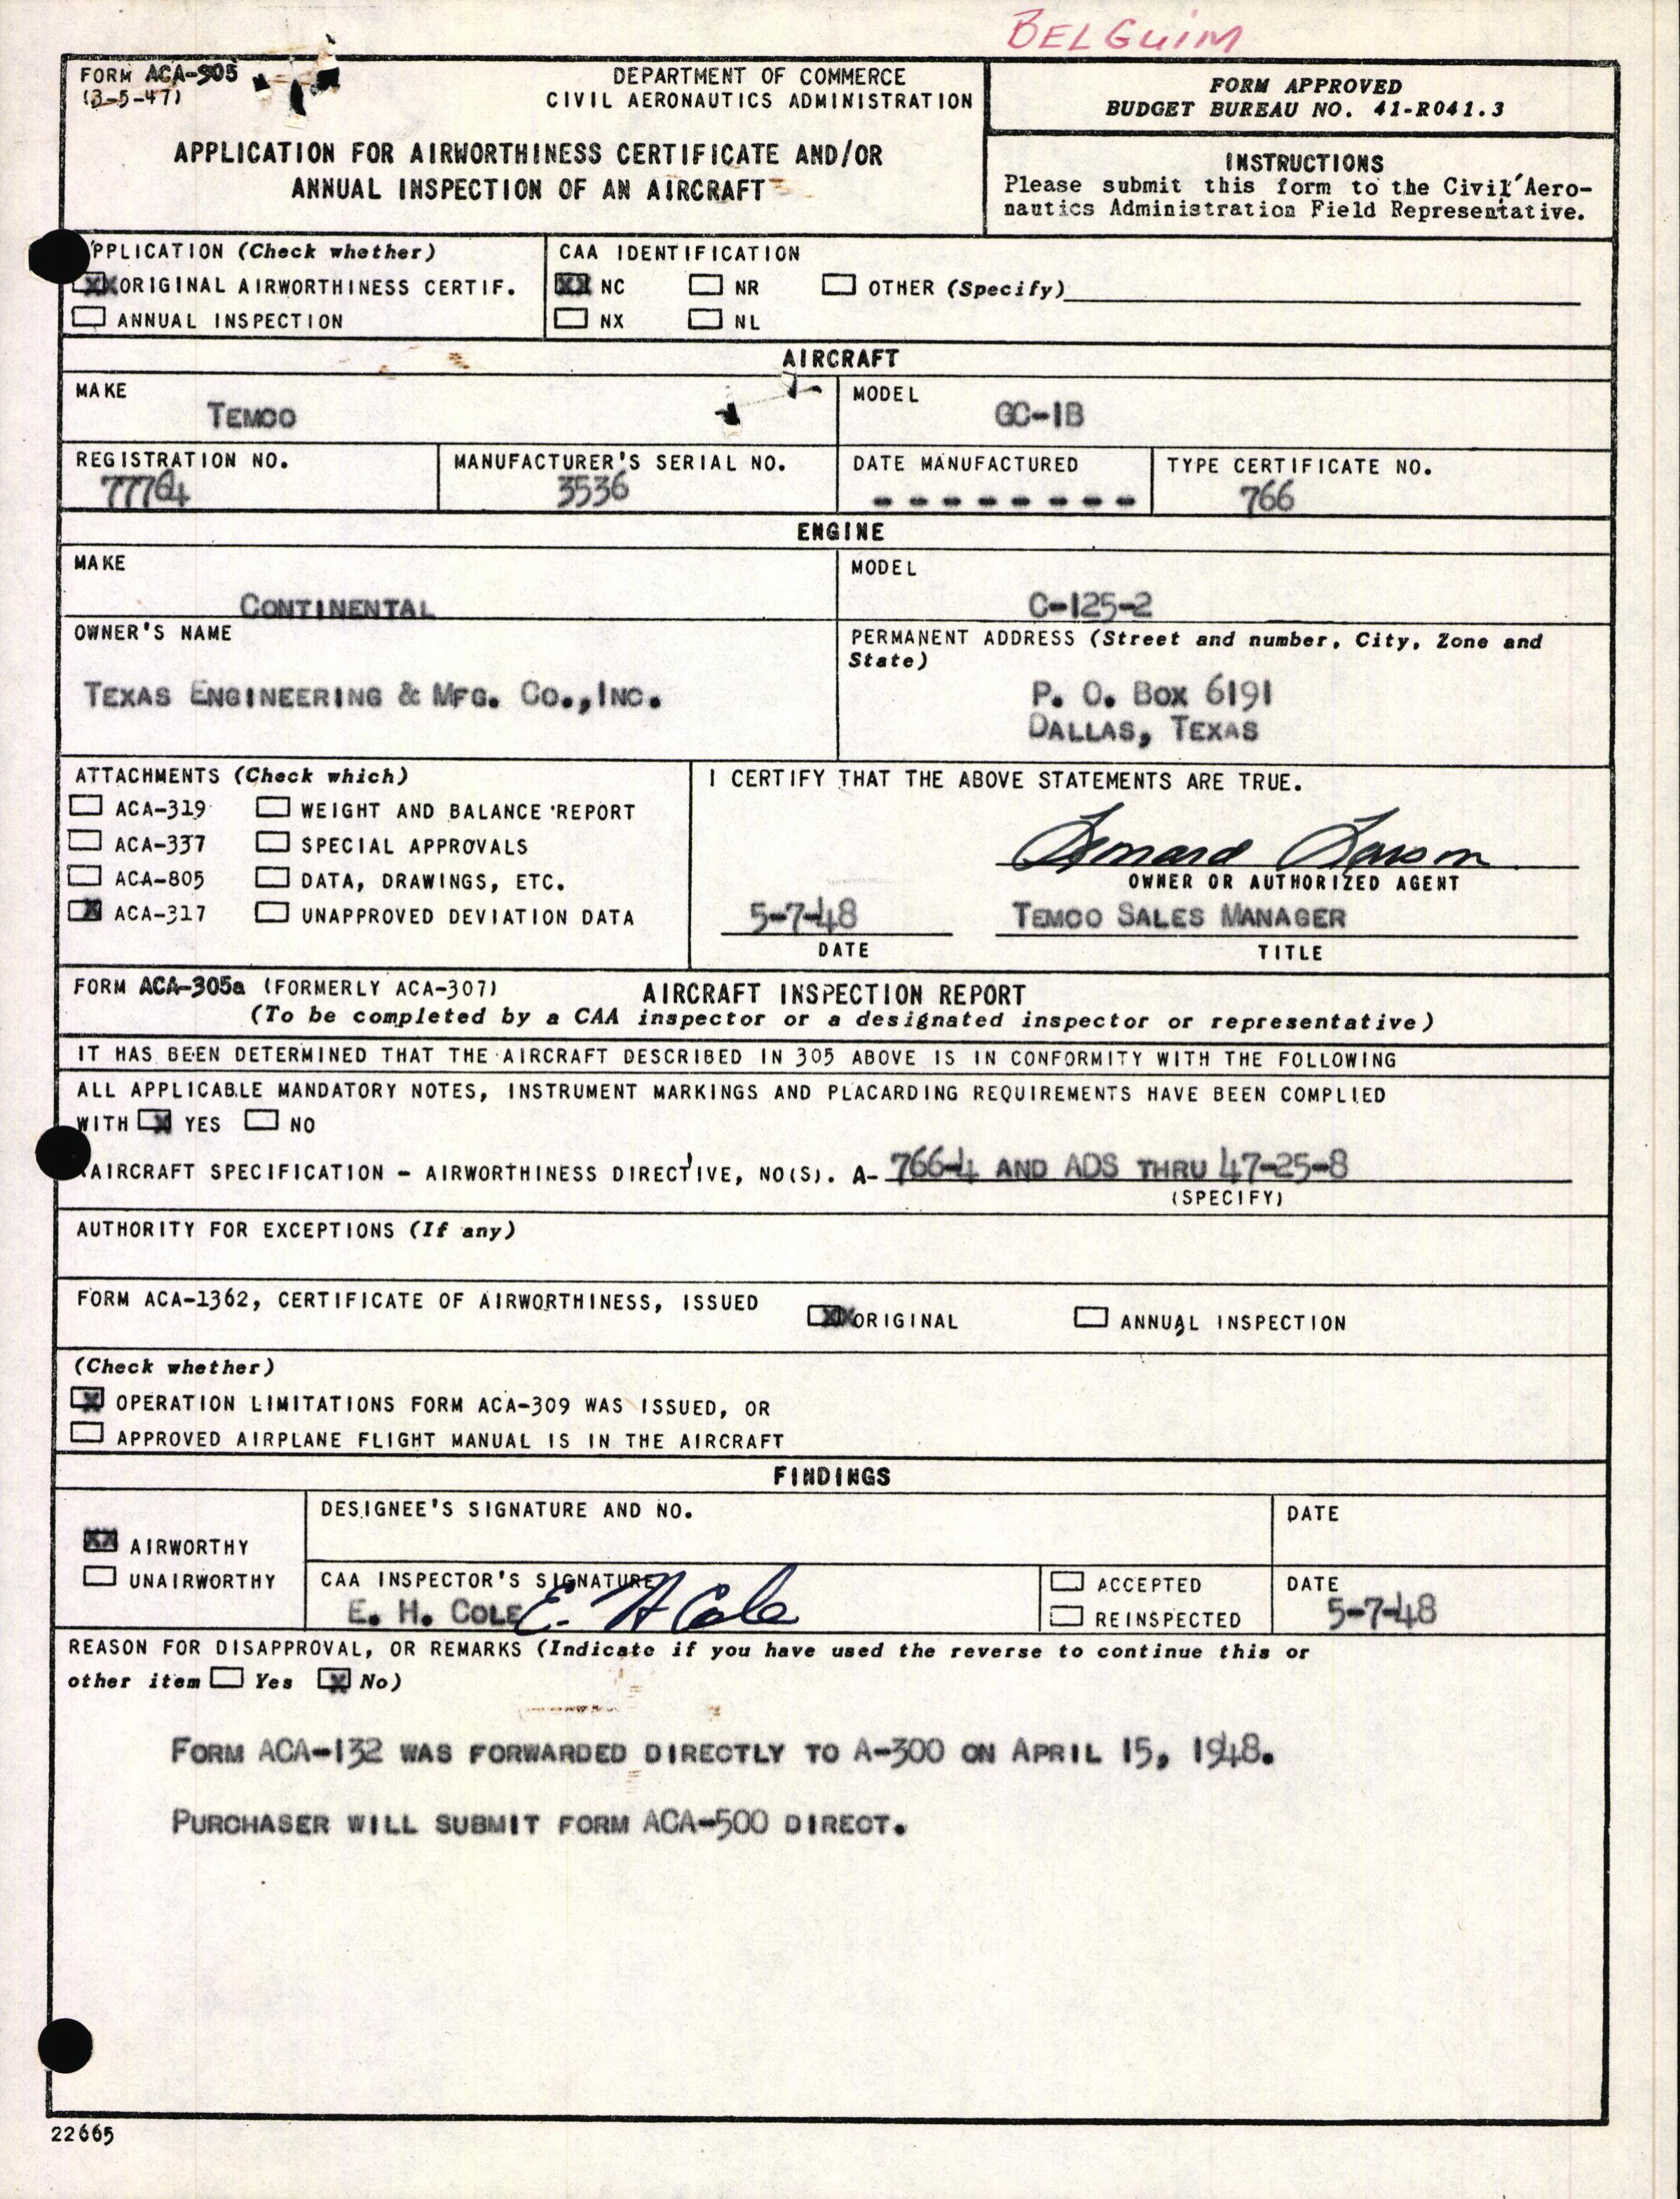 BELGUIM
FORM ACA-305
(3-5-47)
DEPARTMENT OF COMMERCE
CIVIL AERONAUTICS ADMINISTRATION
APPLICATION FOR AIRWORTHINESS CERTIFICATE AND/OR
ANNUAL INSPECTION OF AN AIRCRAFT
FORM APPROVED
BUDGET BUREAU NO. 41-R041.3
INSTRUCTIONS
Please submit this form to the Civil Aero-
nautics Administration Field Representative.
PPLICATION (Check whether)
XX ORIGINAL AIRWORTHINESS CERTIF.
ANNUAL INSPECTION
CAA IDENTIFICATION
XX NC NR OTHER (Specify)
NX NL
AIRCRAFT
MAKE
TEMCO
MODEL
GC-1B
REGISTRATION NO.
77764
MANUFACTURER'S SERIAL NO.
3536
DATE MANUFACTURED
- - - - - - - -
TYPE CERTIFICATE NO.
766
ENGINE
MAKE
CONTINENTAL
MODEL
C-125-2
OWNER'S NAME
TEXAS ENGINEERING & MFG. CO.,INC.
PERMANENT ADDRESS (Street and number, City, Zone and
State)
P. O. BOX 6191
DALLAS, TEXAS
ATTACHMENTS (Check which)
ACA-319 WEIGHT AND BALANCE REPORT
ACA-337 SPECIAL APPROVALS
ACA-805 DATA, DRAWINGS, ETC.
X ACA-317 UNAPPROVED DEVIATION DATA
I CERTIFY THAT THE ABOVE STATEMENTS ARE TRUE.
Lemard Larson
OWNER OR AUTHORIZED AGENT
5-7-48
DATE
TEMCO SALES MANAGER
TITLE
FORM ACA-305a (FORMERLY ACA-307)
AIRCRAFT INSPECTION REPORT
(To be completed by a CAA inspector or a designated inspector or representative)
IT HAS BEEN DETERMINED THAT THE AIRCRAFT DESCRIBED IN 305 ABOVE IS IN CONFORMITY WITH THE FOLLOWING
ALL APPLICABLE MANDATORY NOTES, INSTRUMENT MARKINGS AND PLACARDING REQUIREMENTS HAVE BEEN COMPLIED
WITH X YES NO
AIRCRAFT SPECIFICATION - AIRWORTHINESS DIRECTIVE, NO(S). A- 766-4 AND ADS THRU 47-25-8
(SPECIFY)
AUTHORITY FOR EXCEPTIONS (If any)
FORM ACA-1362, CERTIFICATE OF AIRWORTHINESS, ISSUED XX ORIGINAL ANNUAL INSPECTION
(Check whether)
X OPERATION LIMITATIONS FORM ACA-309 WAS ISSUED, OR
APPROVED AIRPLANE FLIGHT MANUAL IS IN THE AIRCRAFT
FINDINGS
XX AIRWORTHY
UNAIRWORTHY
DESIGNEE'S SIGNATURE AND NO.
DATE
CAA INSPECTOR'S SIGNATURE
E. H. COLE E. H Cole
ACCEPTED
REINSPECTED
DATE
5-7-48
REASON FOR DISAPPROVAL, OR REMARKS (Indicate if you have used the reverse to continue this or
other item Yes X No)
FORM ACA-132 WAS FORWARDED DIRECTLY TO A-300 ON APRIL 15, 1948.
PURCHASER WILL SUBMIT FORM ACA-500 DIRECT.
22665